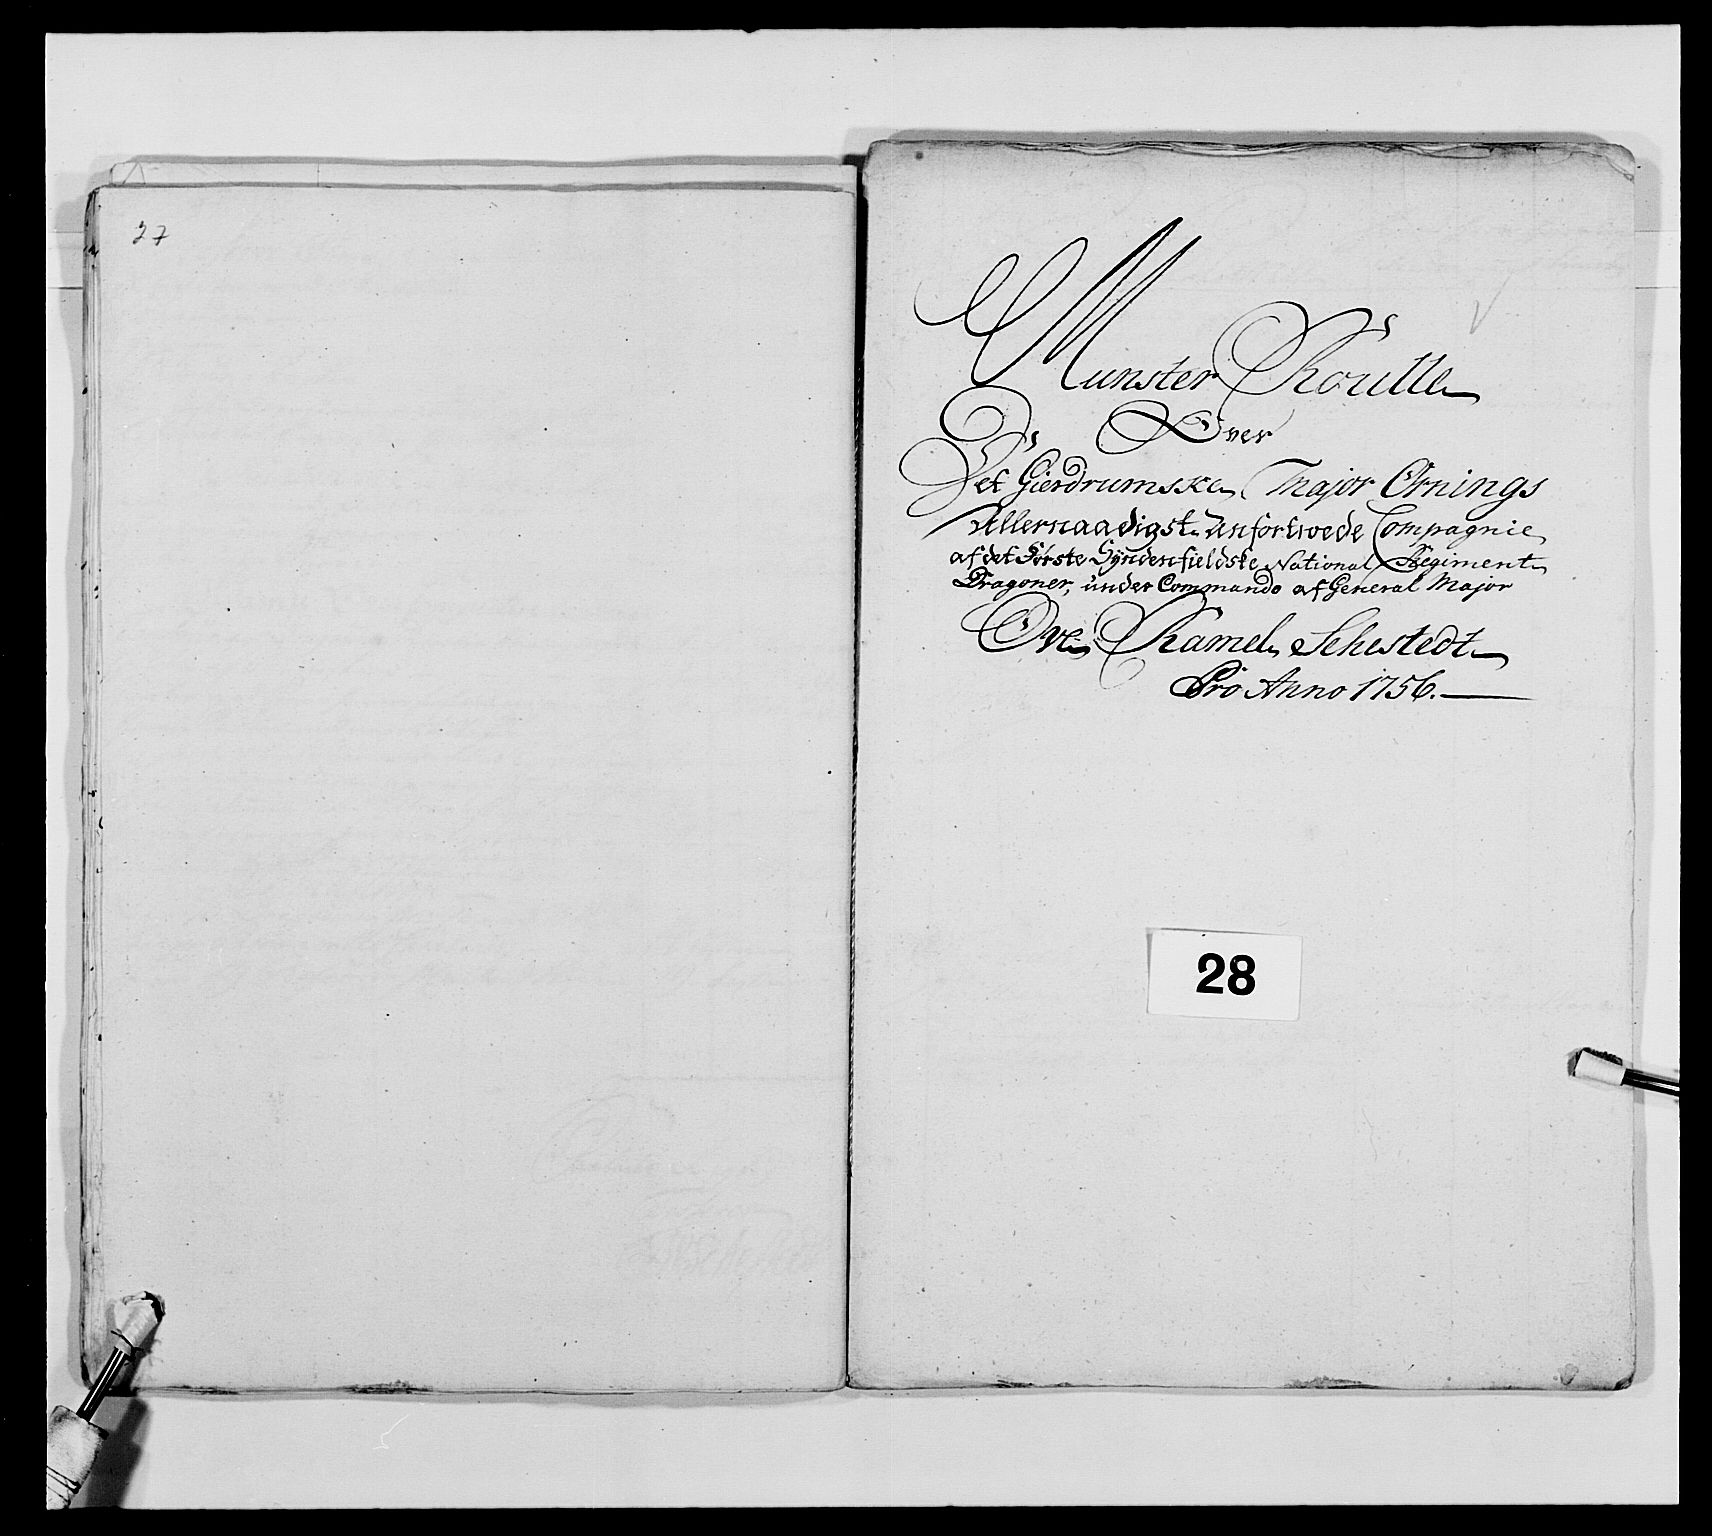 27
Munster Roulle
Over
Det Gierdrumske Major Ornings
Allernaadigst Anfortroede Compagnie
af det Første Syndenfieldske National Regiment
Dragoner, under Commando af General Major
Ove Ramel Sehestedt
Pro Anno 1756.
28